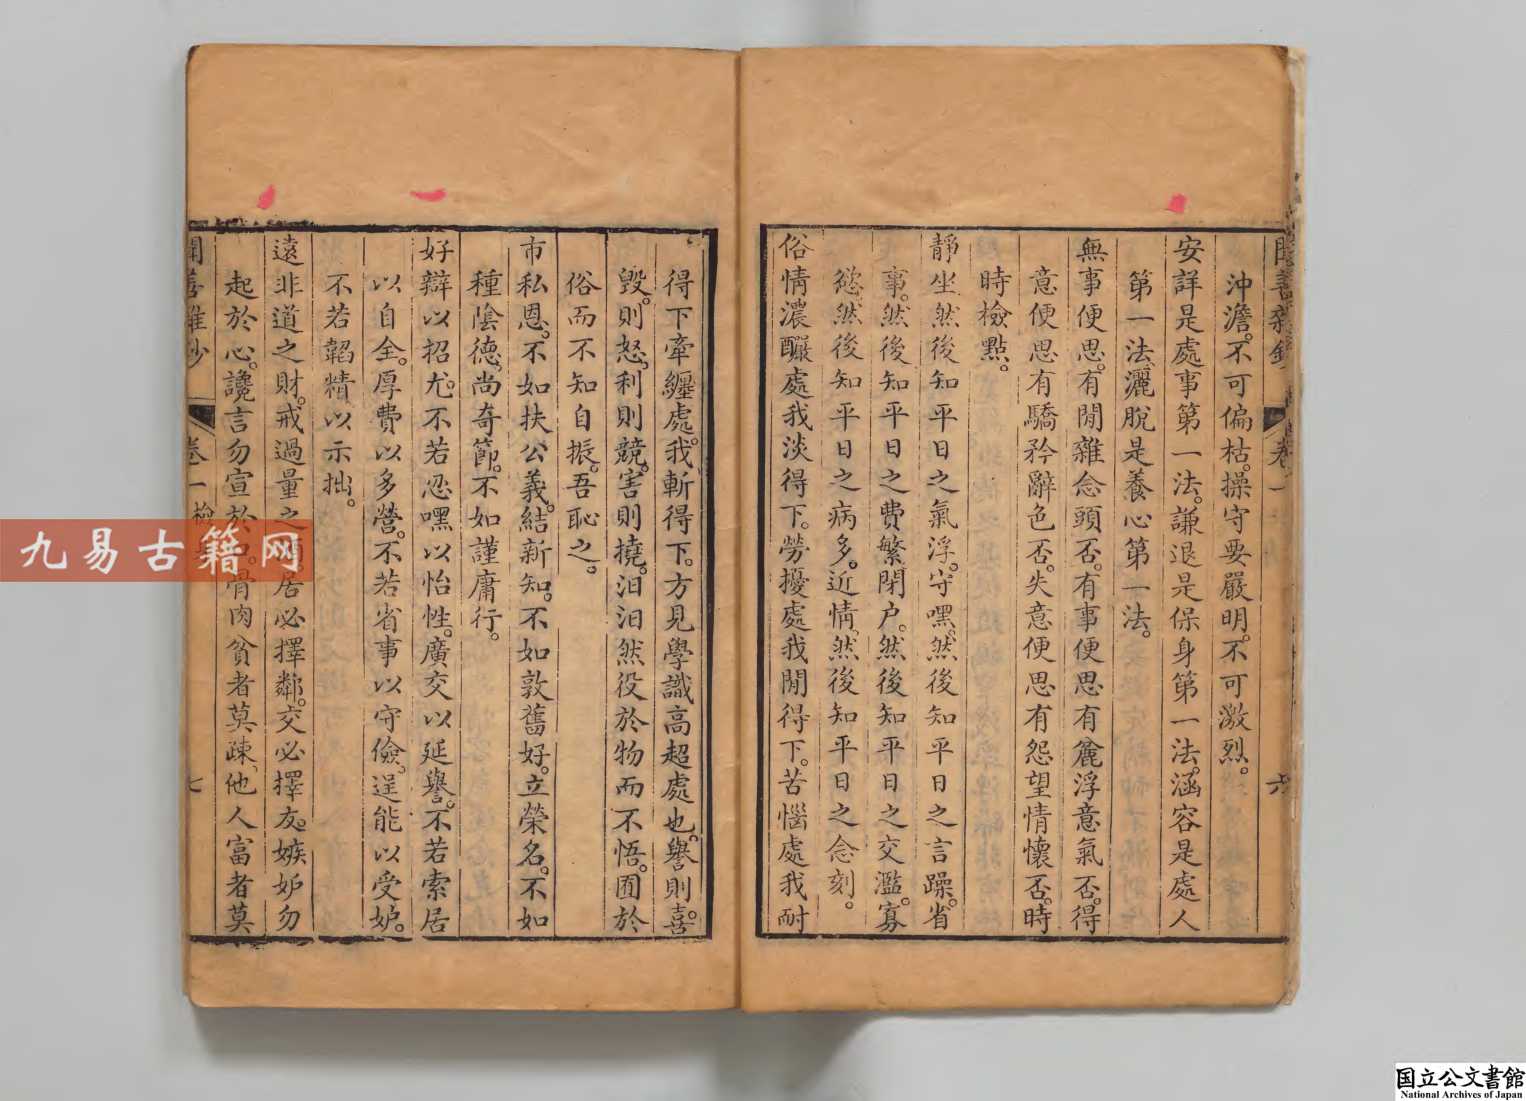 沖澹。不可偏枯。操守要嚴明。不可激烈。
安詳是處事第一法。謙退是保身第一法。涵容是處人
第一法。灑脫是養心第一法。
無事便思。有閒雜念頭否。有事便思有麤浮意氣否。得
意便思有驕矜辭色否。失意便思有怨望情懷否。時
時檢點。
靜坐然後知平日之氣浮。守嘿。然後知平日之言躁。省
事。然後知平日之費繁。閉户。然後知平日之交濫。寡
慾。然後知平日之病多。近情。然後知平日之念刻。
俗情濃釅處我淡得下。勞擾處我閒得下。苦惱處我耐
得下牽纏處。我斬得下。方見學識高超處也。譽則喜。
毀。則怒。利則競。害則撓。汨汨然役於物而不悟。囿於
俗而不知自振。吾恥之。
市私恩。不如扶公義。結新知。不如敦舊好。立榮名。不如
種陰德。尚奇節。不如謹庸行。
好辯以招尤。不若忍嘿以怡性。廣交以延譽。不若索居
以自全。厚費以多營。不若省事以守儉。逞能以受妒。
不若韜精以示拙。
遠非道之財。戒過量之 居必擇鄰。交必擇友。嫉妒勿
起於心。讒言勿宣於 骨肉貧者莫疎。他人富者莫
卷一
七
卷一
六
九易古籍网
国立公文書館
National Archives of Japan